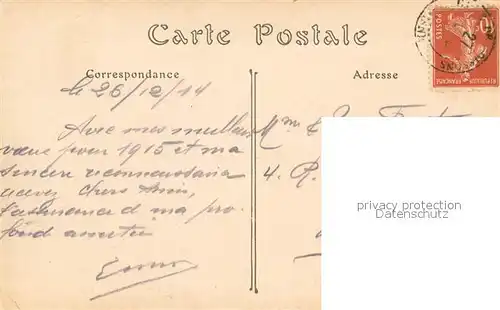 Carte Postale
Correspondance
Adresse
le 26/12/14
Avec mes meilleurs
vœux pour 1915 et ma
sincère reconnaissance
chers Amis,
l'assurance d ma pro-
fonde
4. R.
POSTES
REPUBLIQUE FRANÇAISE
10
privacy protection
Datenschutz